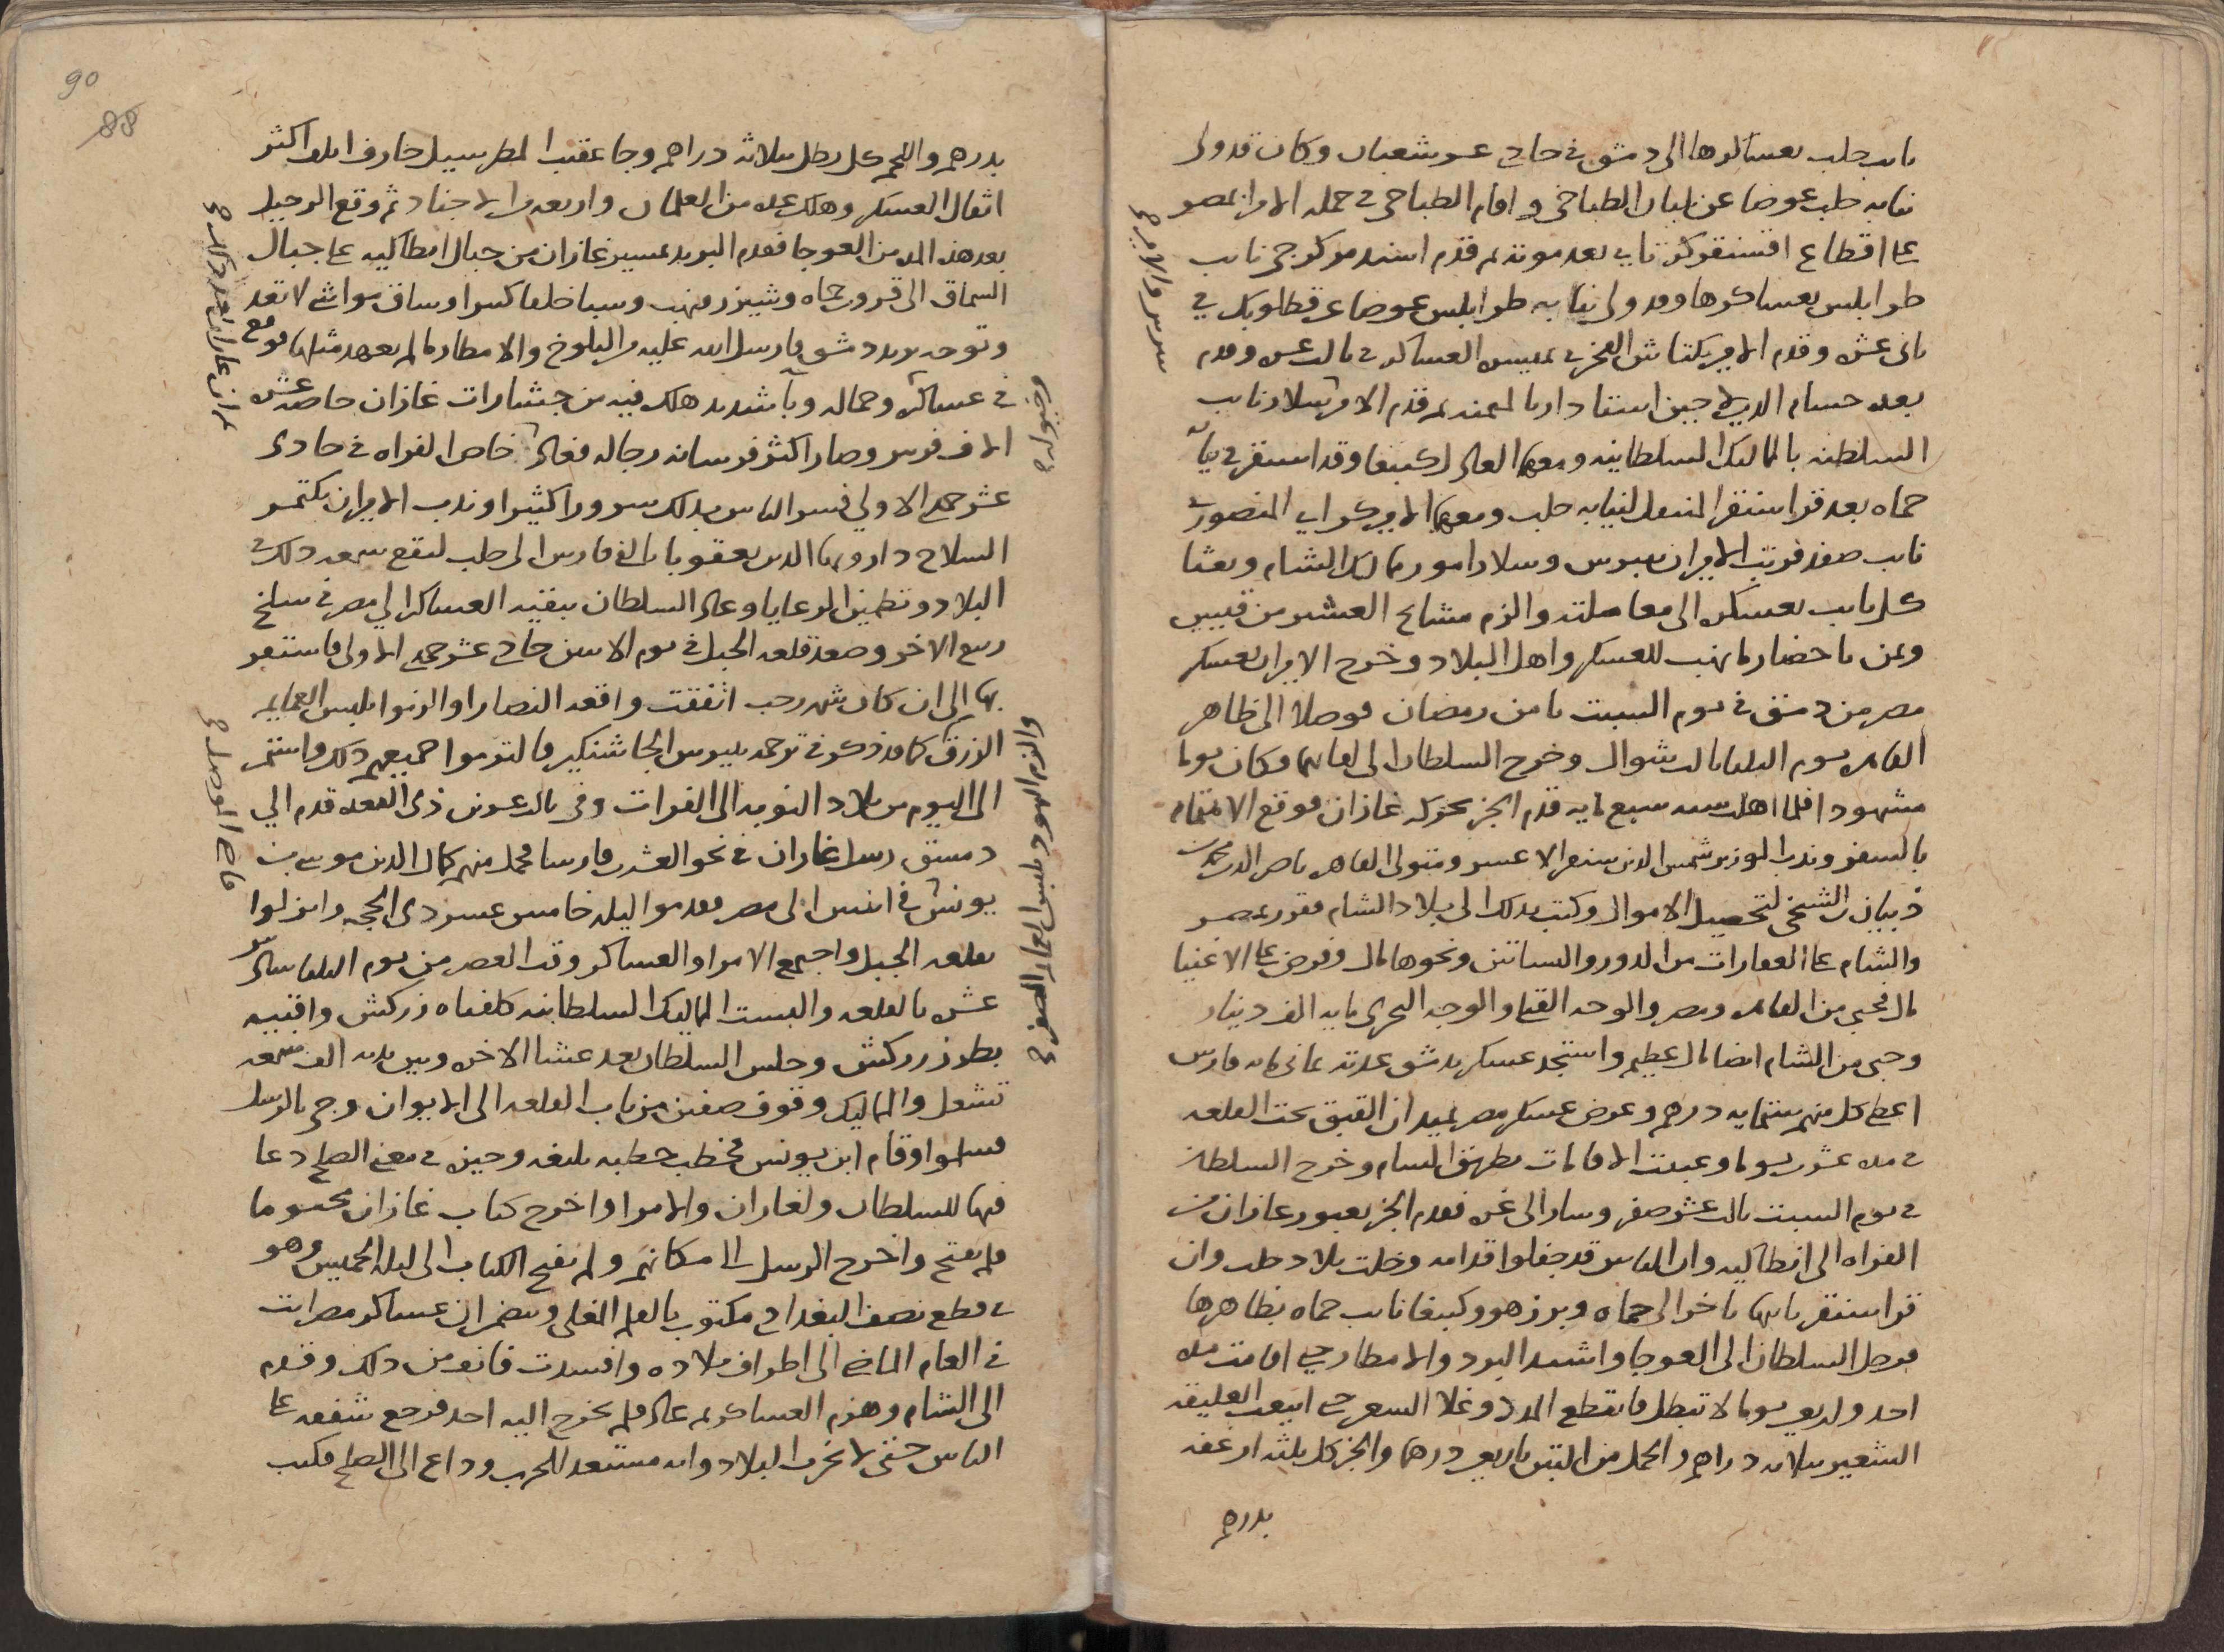 نايب حلب بعساكرها الى دمشق في حادي عشر شعبان وكان قد ولى
نيابه حلب عوضا عن بلبان الطباخى واقام الطباخى فى جمله الامرا بمصر
على اقطاع اقسنقر كرتاى بعد موته ثم قدم اسندمر كرجى نايب
طرابلس بعساكرها وقد ولى نيابه طرابلس عوضا عن قطلوبك فى
ثانى عشره وقدم الامير بكتاش الفخرى بمن معه من العساكر فى ثالث عشره وقدم
بعده حسام الدين لاجين استادار بالميمنه ثم قدم الامير سلار نايب
السلطنه بالمماليك السلطانيه ومعه العادل كتبغا وقد استقر فى نيابه
حماه بعد قراسنقر المنتقل لنيابه حلب ومعهم الامير كراى المنصورى
نايب صفد فرتب الاميران بيبرس وسلار امور ممالك الشام وبعثا
كل نايب بعسكره الى معاملته والزم مشايخ العشير من قيس
ويمن باحضار ما نهب للعسكر واهل البلاد وخرج الاميران بعسكر
مصر من دمشق فى يوم السبت ثامن رمضان فوصلا الى ظاهر
القاهره يوم الثلثا ثالث شوال وخرج السلطان الى لقايهما وكان يوما
مشهودا فلما اهلت سنه سبع مايه قدم الخبر بحركه غازان فوقع الاهتمام
بالسفر وندب الوزير شمس الدين سنقر الاعسر ومتولى القاهره ناصر الدين محمد بن
ذبيان الشيخى لتحصيل الاموال وكتب بذلك الى بلاد الشام فقرر بمصر
والشام على العقارات من الدور والبساتين ونحوها مال وفرض على الاغنيا
مال فجبى من القاهره ومصر والوجه القبلى والوجه البحرى مايه الف دينار
وجبى من الشام ايضا مال عظيم واستجد عسكر بدمشق عدته ثمانى مايه فارس
اعطى كل منهم ستمايه درهم وعرض عسكر مصر بميدان القبق تحت القلعه
فى مده عشرين يوما وعبيت الاقامات بطريق الشام وخرج السلطان
فى يوم السبت ثالث عشر صفر وسار الى غزه فقدم الخبر بعبور غازان من
الفراه الى انطاكيه وان الناس قد جفلوا قدامه وخلت بلاد حلب وان
قراسنقر نايبها تاخر الى حماه وبرز هو وكتبغا نايب حماه بظاهرها
فوصل السلطان الى العوجا واشتد البرد والامطار حتى اقامت مده
احد واربعين يوما لا تبطل فانقطع المدد وغلا السعر حتى ابيعت العليقه
الشعير بثلاثه دراهم والحمل من التبن باربعين درهما والخبز كل ثلثه ارغفه
بدرهم
سلار والامير
90
88
بدرهم واللحم كل رطل بثلاثه دراهم وجا عقيب المطر سيل جارف اتلف اكثر
اثقال العسكر وهلك عده من الغلمان واربعه من الاجناد ثم وقع الرحيل
بعد هذه المده من العوجا فقدم البريد بمسير غازان من جبال انطاكيه على جبال
السماق الى قرون حماه وشيزر ونهب وسبا خلقا كثيرا وساق مواشى لا تعد
وتوجه يريد دمشق فارسل الله عليه من الثلوج والامطار ما لم يعهد مثله ووقع
فى عساكره وجماله وبا شديد هلك فيه من جشارات غازان خاصه عشره
الاف فرس وصار اكثر فرسانه رجاله فعاد خاض الفراه فى حادى
عشر جمدى الاولى فسر الناس بذلك سرورا كثيرا وندب الاميران بكتمر
السلاح دار وبها الدين يعقوبا بالف فارس الى حلب لتقع سمعه ذلك فى
البلاد وتطمين الرعايا وعاد السلطان ببقيه العساكر الى مصر فى سلخ
ربيع الاخر وصعد قلعه الجبل فى يوم الاثنين حادى عشر جمدى الاولى فاستقر
بها الى ان كان شهر رجب اتفقت واقعه النصارا والزموا بلبس العمايم
الزرق كما قد ذكر فى ترجمه بيبرس الجاشنكير فالتزموا جميعهم ذلك واستمر
الى اليوم من بلاد النوبه الى الفرات وفى ثالث عشرين ذى القعده قدم الى
دمشق رسل غازان فى نحو العشرين فارسا فحمل منهم كمال الدين موسى بن
يونس فى اثنين الى مصر فقدموا ليله خامس عشر ذى الحجه وانزلوا
بقلعه الجبل واجتمع الامرا والعساكر وقت العصر من يوم الثلثا سادس
عشره بالقلعه والبست المماليك السلطانيه كلفتاه زركش واقبيه
بطرز زركش وجلس السلطان بعد عشا الاخره وبين يديه الف شمعه
تشعل والمماليك وقوف صفين من باب القلعه الى الايوان وجى بالرسل
فسلموا وقام ابن يونس فخطب خطبه بليغه وجيزه فى معنى الصلح دعا
فيها للسلطان ولغازان والامرا واخرج كتاب غازان مختوما
فلم يفتح واخرج الرسل الى مكانهم ولم يفتح الكتاب الى ليله الخميس وهو
فى قطع نصف البغدادى مكتوب بالقلم المغلى ويتضمن ان عساكر مصر اتت
فى العام الماضى الى اطراف بلاده وافسدت فانف من ذلك وقدم
الى الشام وهزم العساكر ثم عاد فلم يخرج اليه احد فرجع شفقه على
الناس حتى لا تخرب البلاد وانه مستعد للحرب وداع الى الصلح فكتب